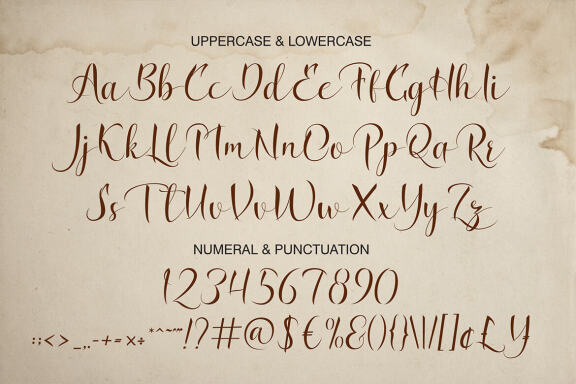 UPPERCASE & LOWERCASE
Aa Bb Cc Dd Ee Ff Gg Hh Ii
Jj Kk Ll Mm Nn Oo Pp Qq Rr
Ss Tt Uu Vv Ww Xx Yy Zz
NUMERAL & PUNCTUATION
1234567890
:;<>_,.-+=×÷*^~"'!?#@$€%&(){}\|/[]¢£¥